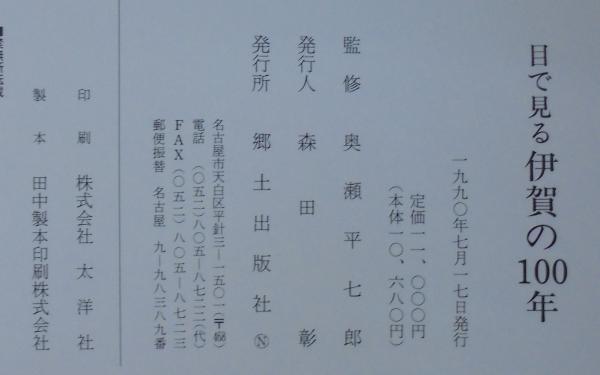 目で見る伊賀の100年
一九九〇年七月一七日発行
定価一一、〇〇〇円
(本体一〇、六八〇円)
監修 奥瀬平七郎
発行人 森田 彰
発行所 郷土出版社 Ⓝ
名古屋市天白区平針三―一五〇一(〒468)
電話 (〇五二)八〇五―八七二二(代)
FAX(〇五二)八〇五―八七二三
郵便振替 名古屋 九―九八三八九番
印刷 株式会社 太洋社
製本 田中製本印刷株式会社